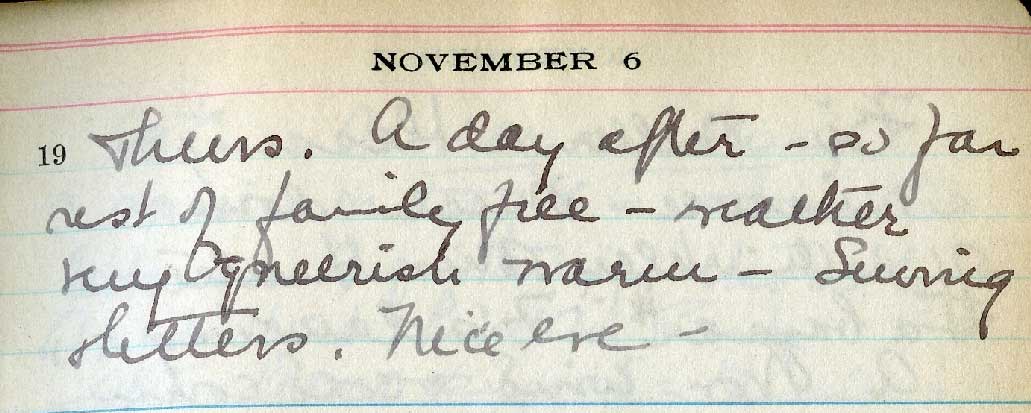 NOVEMBER 6
19 Thurs. A day after - so far
rest of family free - weather
very queerish warm - Sewing
letters. Nice eve -